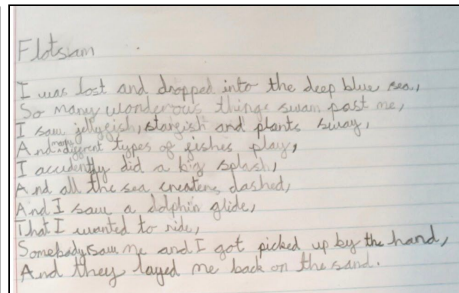 Flotsam
I was lost and dropped into the deep blue sea,
So many wonderous things swam past me,
I saw jellyfish, starfish and plants sway,
And many different types of fishes play,
I accidently did a big splash,
And all the sea createns dashed,
And I saw a dolphin glide,
That I wanted to ride,
Somebody saw me and I got picked up by the hand,
And they layed me back on the sand.